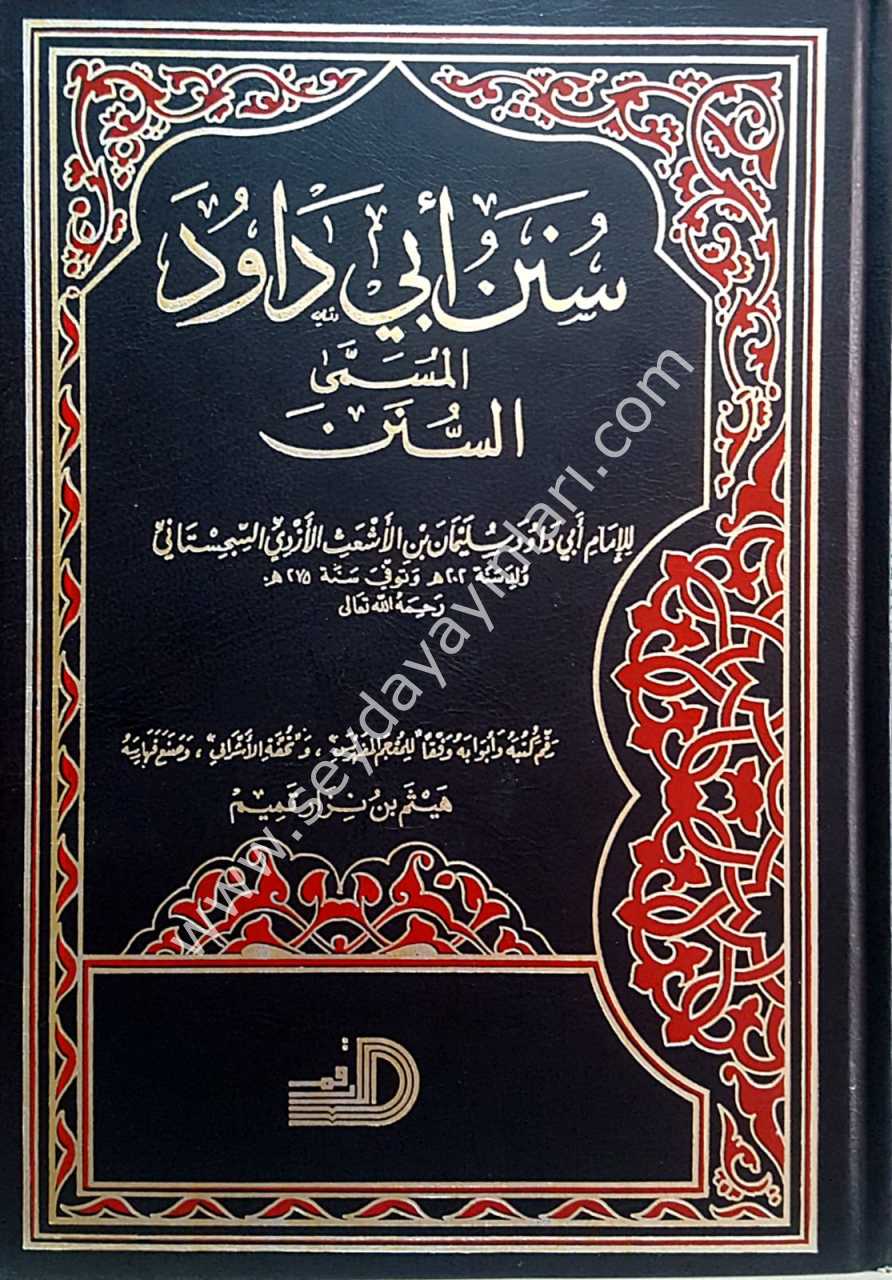 سُنَنُ أَبِي دَاوُدَ
المُسَمَّى
السُّنَن
لِلإِمَامِ أَبِي دَاوُدَ سُلَيْمَانَ بْنِ الأَشْعَثِ الأَزْدِيِّ السِّجِسْتَانِيّ
وُلِدَ سَنَة ٢٠٢ هـ وَتُوفِّيَ سَنَة ٢٧٥ هـ.
رَحِمَهُ اللهُ تَعَالَى
رَقَّمَ كُتُبَهُ وَأَبْوَابَهُ وَفْقًا "للمُعْجَمِ المُفَهْرَس"، وَ"تُحْفَةِ الأَشْرَافِ"، وَصَنَعَ فَهَارِسَهُ
هَيْثَم بن نِزَار تَمِيم
www.seydayayinlari.com